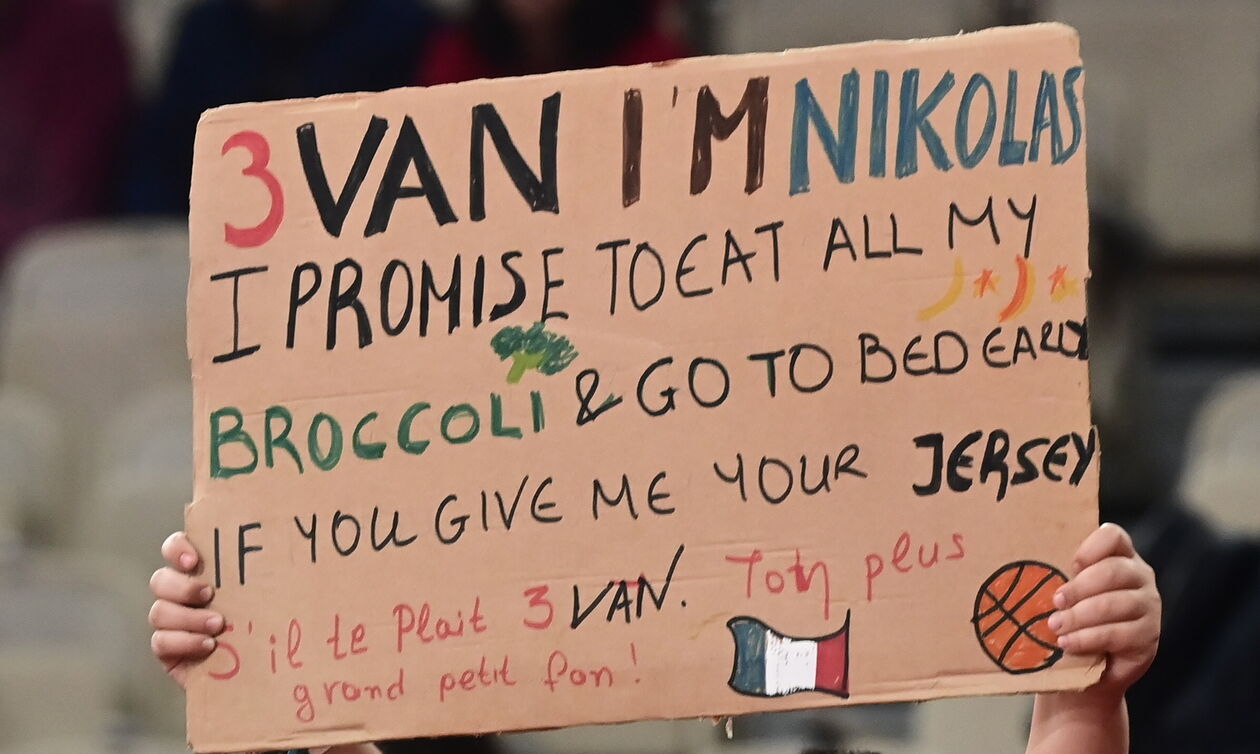 3VAN I'M NIKOLAS
I PROMISE TO EAT ALL MY
BROCCOLI & GO TO BED EARLY
IF YOU GIVE ME YOUR JERSEY
S'il te Plait 3VAN. Ton plus
grand petit fan!